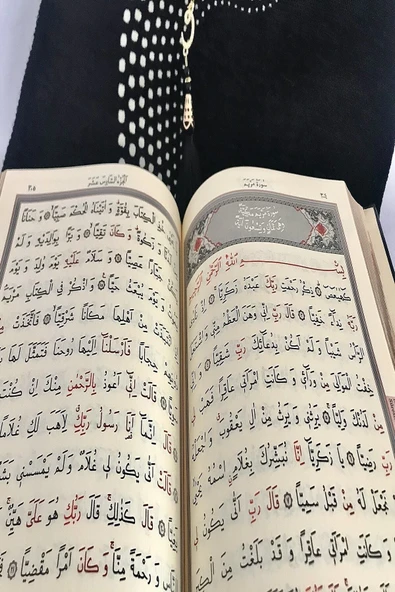 سورة مريم
سورة مريم مكية
بِسْمِ اللّٰهِ الرَّحْمٰنِ الرَّحِيمِ
كٓهٰيٰعٓصٓ ۞ ذِكْرُ رَحْمَتِ رَبِّكَ عَبْدَهُ زَكَرِيَّا ۞ اِذْ
رَبَّهُ نِدَٓاءً خَفِيًّا ۞ قَالَ رَبِّ اِنّٖي وَهَنَ الْعَظْمُ مِنّٖي وَاشْتَعَلَ
الرَّأْسُ شَيْبًا وَلَمْ اَكُنْ بِدُعَٓائِكَ رَبِّ شَقِيًّا ۞
خِفْتُ الْمَوَالِيَ مِنْ وَرَٓائٖي وَكَانَتِ امْرَاَتٖي عَاقِرًا فَهَبْ لٖي
مِنْ لَدُنْكَ وَلِيًّا ۞ يَرِثُنٖي وَيَرِثُ مِنْ اٰلِ يَعْقُوبَ وَاجْعَلْهُ
رَبِّ رَضِيًّا ۞ يَا زَكَرِيَّٓا اِنَّا نُبَشِّرُكَ بِغُلَامٍ اسْمُهُ يَحْيٰى
نَجْعَلْ لَهُ مِنْ قَبْلُ سَمِيًّا ۞ قَالَ رَبِّ اَنّٰى يَكُونُ لٖي
وَكَانَتِ امْرَاَتٖي عَاقِرًا وَقَدْ بَلَغْتُ مِنَ الْكِبَرِ
الجزء السادس عشر
٣٠٥
خُذِ الْكِتَابَ بِقُوَّةٍ وَاٰتَيْنَاهُ الْحُكْمَ صَبِيًّا ۞ وَحَنَانًا
وَزَكٰوةً وَكَانَ تَقِيًّا ۞ وَبَرًّا بِوَالِدَيْهِ وَلَمْ
جَبَّارًا عَصِيًّا ۞ وَسَلَامٌ عَلَيْهِ يَوْمَ وُلِدَ وَيَوْمَ
وَيَوْمَ يُبْعَثُ حَيًّا ۞ وَاذْكُرْ فِي الْكِتَابِ مَرْيَمَ
انْتَبَذَتْ مِنْ اَهْلِهَا مَكَانًا شَرْقِيًّا ۞ فَاتَّخَذَتْ
حِجَابًا فَاَرْسَلْنَٓا اِلَيْهَا رُوحَنَا فَتَمَثَّلَ لَهَا
قَالَتْ اِنّٖٓي اَعُوذُ بِالرَّحْمٰنِ مِنْكَ اِنْ كُنْتَ
قَالَ اِنَّمَٓا اَنَا رَسُولُ رَبِّكِ لِاَهَبَ لَكِ غُلَامًا
قَالَتْ اَنّٰى يَكُونُ لٖي غُلَامٌ وَلَمْ يَمْسَسْنٖي بَشَرٌ
قَالَ كَذٰلِكِ قَالَ رَبُّكِ هُوَ عَلَيَّ هَيِّنٌ
وَرَحْمَةً مِنَّا وَكَانَ اَمْرًا مَقْضِيًّا ۞